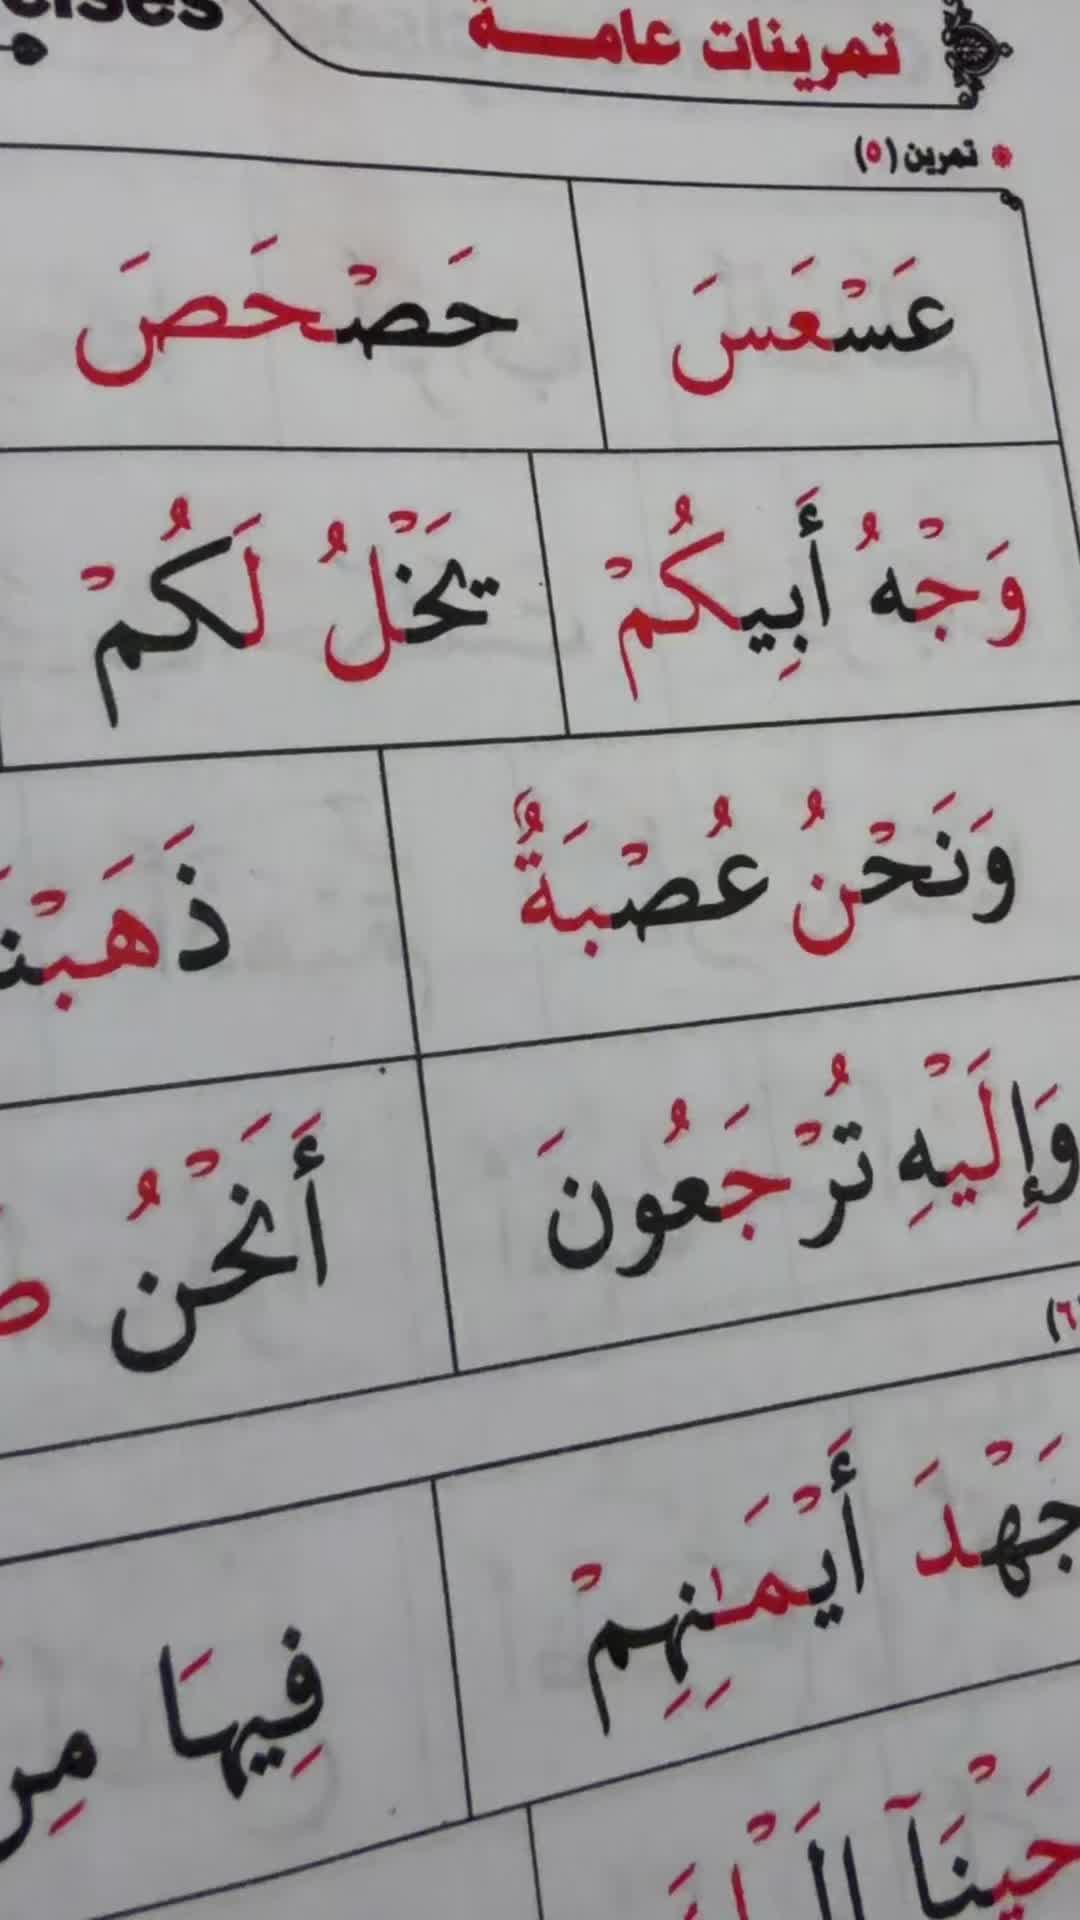 تمرينات عامة
تمرين (٥)
عَسْعَسَ حَصْحَصَ
وَجْهُ أَبِيكُمْ يَخْلُ لَكُمْ
وَنَحْنُ عُصْبَةٌ
وَإِلَيْهِ تُرْجَعُونَ أَنَحْنُ
(٦)
جَهْدَ أَيْمَـٰنِهِمْ
فِيهَا